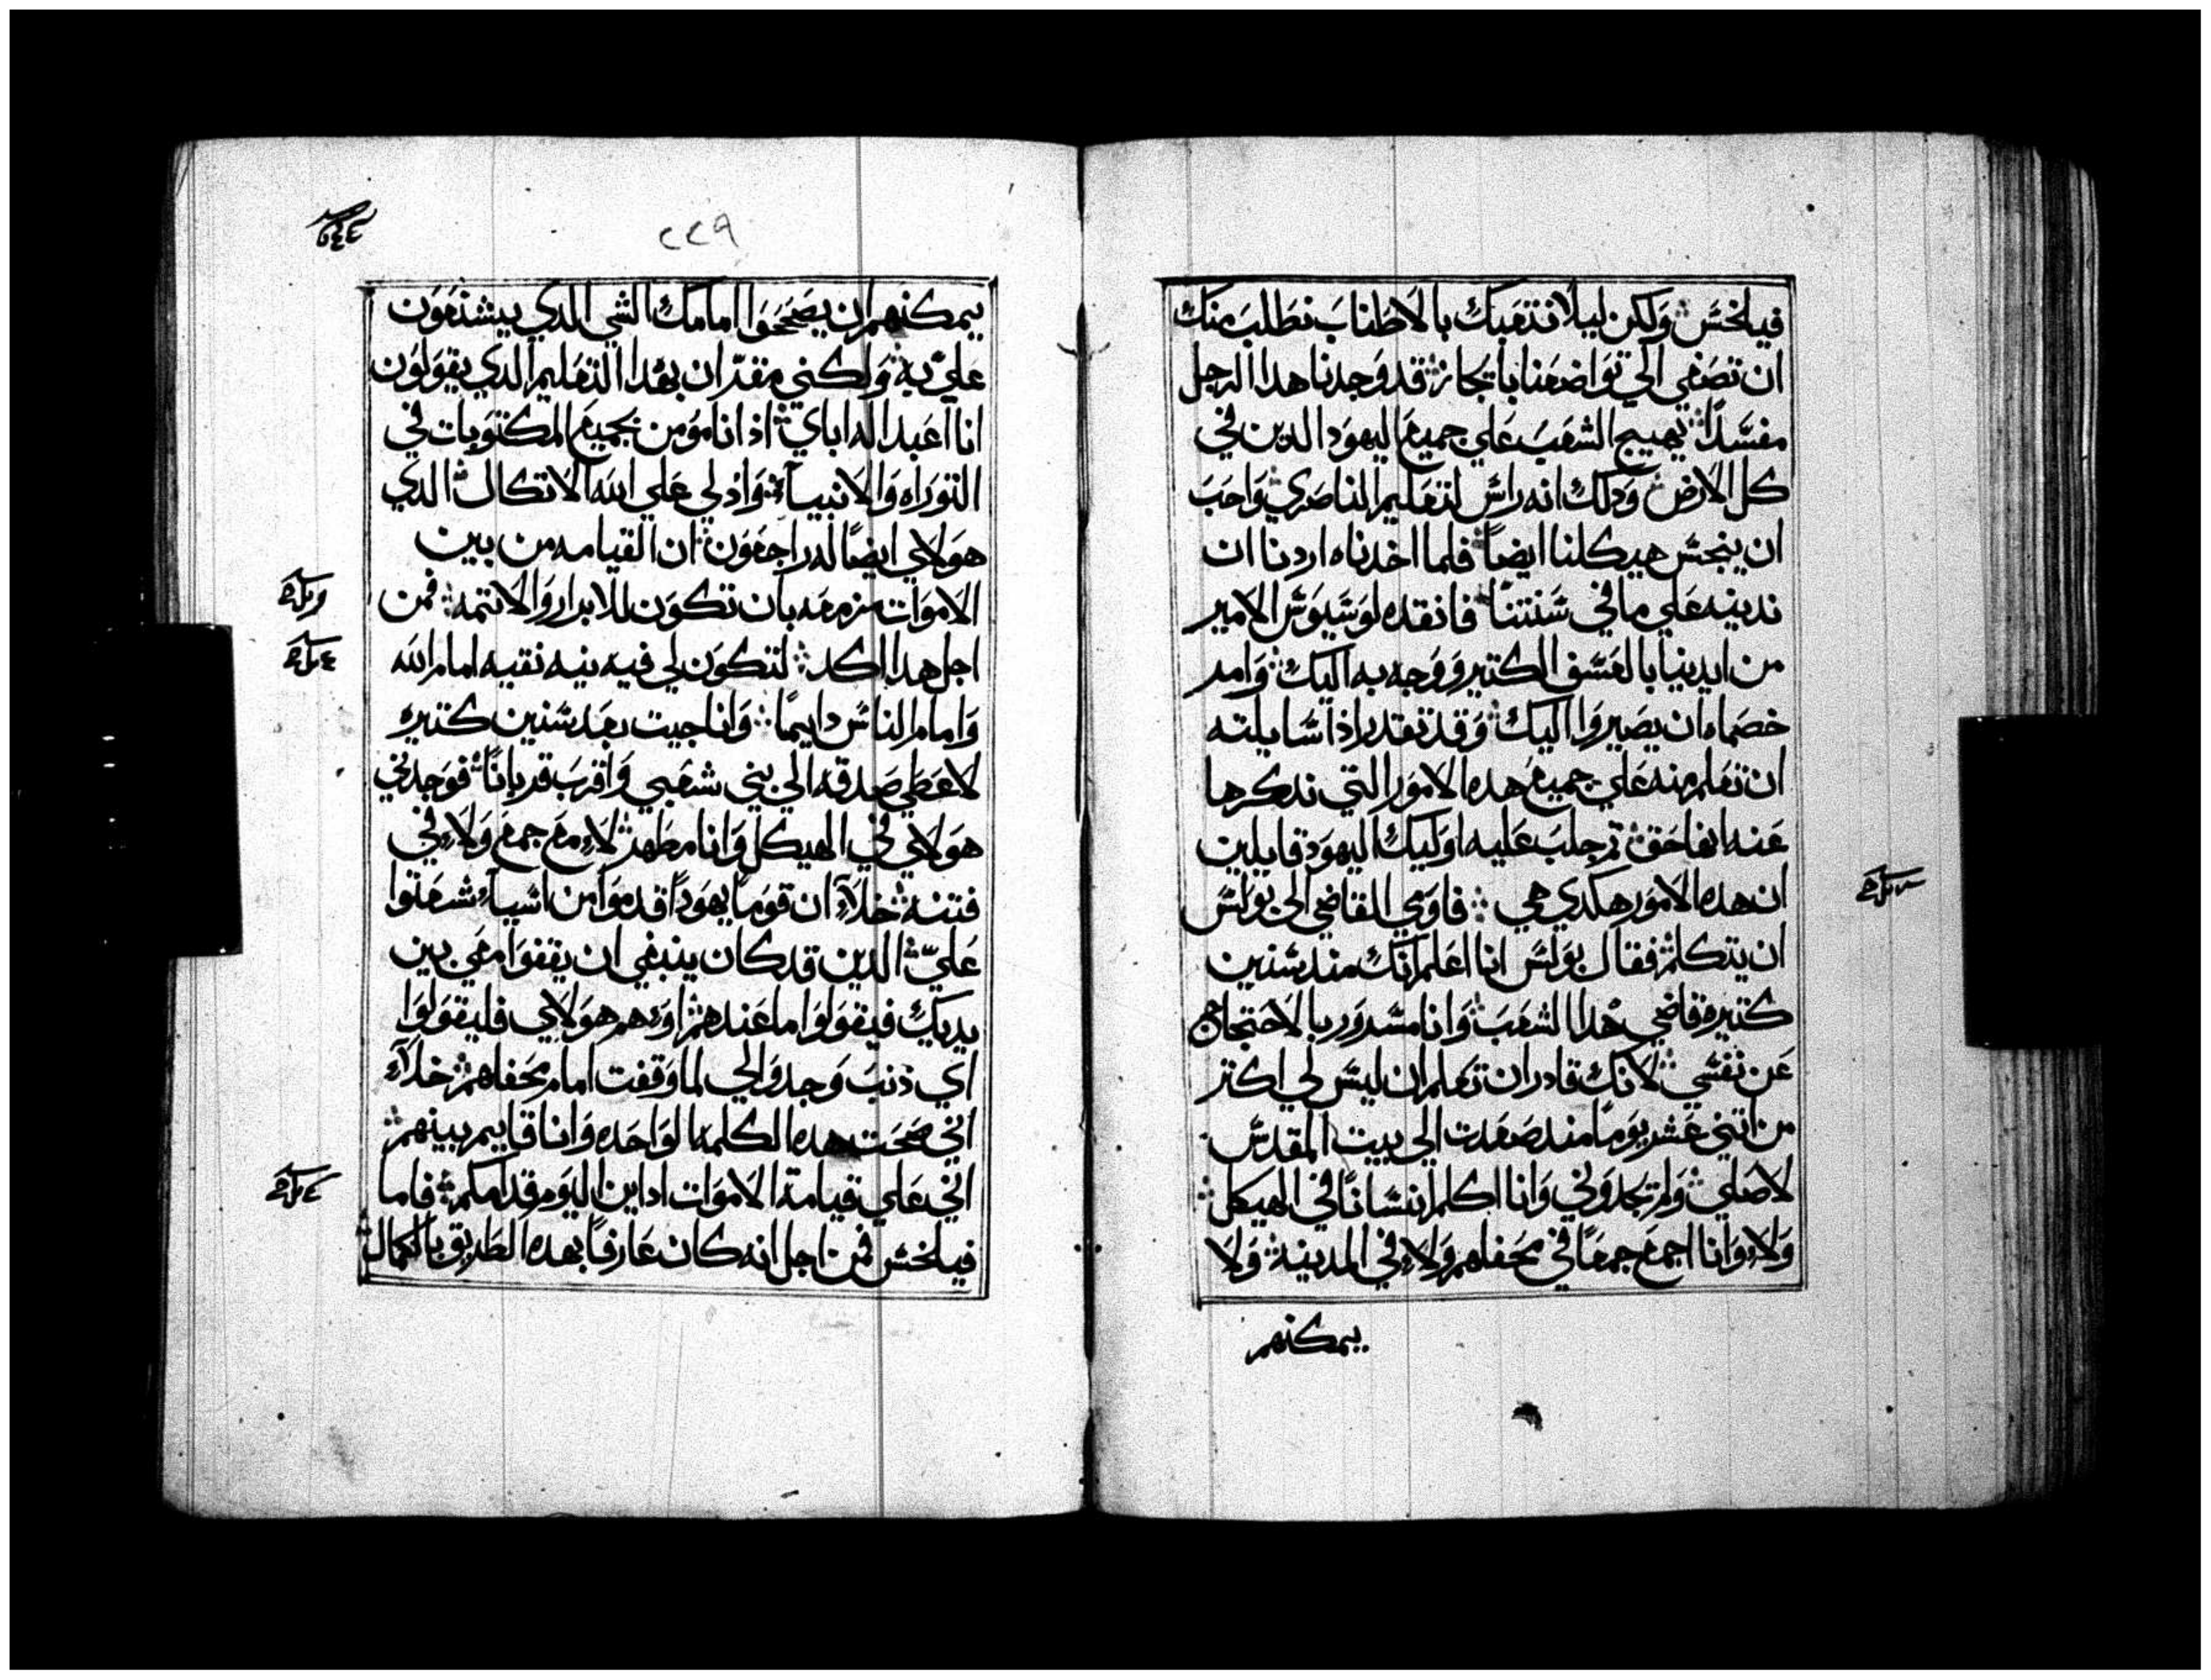 فيلخس ولكن ليلا نتعبك بالاطناب نطلب منك
ان تصغي الي تواضعنا بايجاز قد وجدنا هدا الرجل
مفسدًا يهييج الشعب علي جميع اليهود الدين في
كل الارض ودلك انه راس لتعليم الناصري واحب
ان ينجس هيكلنا ايضاً فلما اخدناه اردنا ان
ندينه علي ما في سنتنا فانقده لوسيوس الامير
من ايدينا بالعسف الكتير ووجه به اليك وامر
خصماه ان يصيروا اليك وقد تقدر اذا سايلته
ان تعلم منه علي جميع هده الامور التي ندكرها
عنه انها حق ثم جلب عليه اوليك اليهود قايلين
ان هده الامور هكدي هي فاومي القاضي الي بولس
ان يتكلم فقال بولس انا اعلم انك مند سنين
كتيرة قاضي لهدا الشعب وانا مسرور بالاحتجاج
عن نفسي لانك قادر ان تعلم ان ليس لي اكتر
من اتني عشر يوماً مند صعدت الي بيت المقدس
لاصلي ولم تجدوني وانا اكلم انسانًا في الهيكل
ولاء وانا اجمع جمعاً في محفلهم ولاء في المدينه ولا
يمكنهم
٢٢٩
يمكنهم ان يصححوا امامك الشي الدي يشنعون
علي به ولكني مقر ان بهدا التعليم الدي يقولون
انا اعبد اله اباي اذ انا مومن بجميع المكتوبات في
التوراه والانبياء واذ لي علي الله الاتكال الدي
هولاي ايضاً له راجعون ان القيامه من بين
الاموات مزمعه بان تكون للابرار والاتمه فمن
اجل هدا اكد لتكون لي فيه نيه نقيه امام الله
وامام الناس دايمًا وانا جيت بعد سنين كتيره
لاعطي صدقه الي بني شعبي واقرب قرباناً فوجدني
هولاي في الهيكل وانا مطهر لاء مع جمع ولاء في
فتنه خلاء ان قوماً يهوداً قدموا من اسياء شغبوا
علي الدين قد كان ينبغي ان يقفوا معي بين
يديك فيقولوا ما عندهم او هم هولاي فليقولوا
اي ذنب وجدوا لي لما وقفت امام محفلهم خلاء
اني صحت هده الكلمه الواحده وانا قايم بينهم
اني علي قيامة الاموات اداين اليوم قدامكم فاما
فيلخس فمن اجل انه كان عارفاً بهده الطريق بالكمال